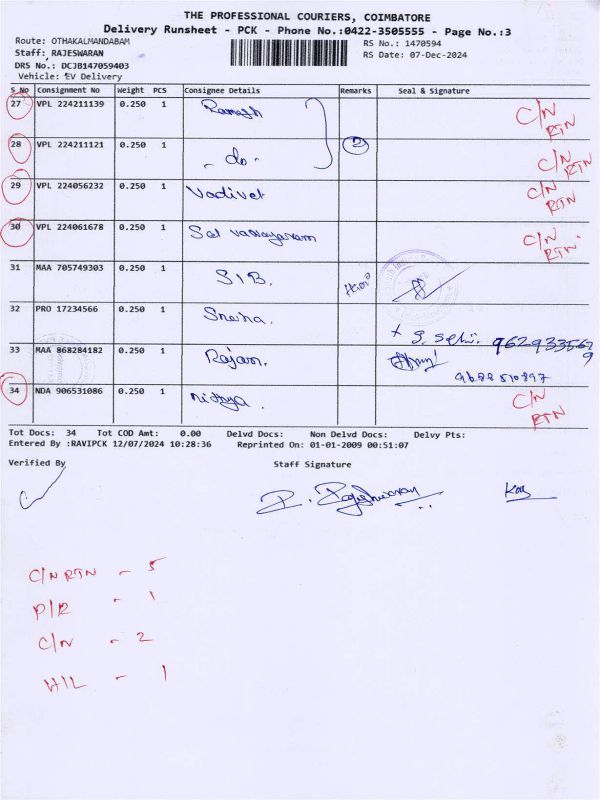 THE PROFESSIONAL COURIERS, COIMBATORE
Delivery Runsheet - PCK - Phone No.:0422-3505555 - Page No.:3
Route: OTHAKALMANDABAM
RS No.: 1470594
Staff: RAJESWARAN
RS Date: 07-Dec-2024
DRS No.: DCJB147059403
Vehicle: EV Delivery
S No Consignment No Weight PCS Consignee Details Remarks Seal & Signature
27 VPL 224211139 0.250 1 Ramesh C/N RTN
28 VPL 224211121 0.250 1 - do - 2 C/N RTN
29 VPL 224056232 0.250 1 Vadivel C/N RTN
30 VPL 224061678 0.250 1 Sai C/N RTN
31 MAA 705749303 0.250 1 SIB.
32 PRO 17234566 0.250 1 Sneha.
33 MAA 868284182 0.250 1 Rajan.
34 NDA 906531086 0.250 1 Nithya. C/N RTN
Tot Docs: 34 Tot COD Amt: 0.00 Delvd Docs: Non Delvd Docs: Delvy Pts:
Entered By :RAVIPCK 12/07/2024 10:28:36 Reprinted On: 01-01-2009 00:51:07
Verified By Staff Signature
C/N RTN - 5
P/R - 1
C/N - 2
H/L - 1